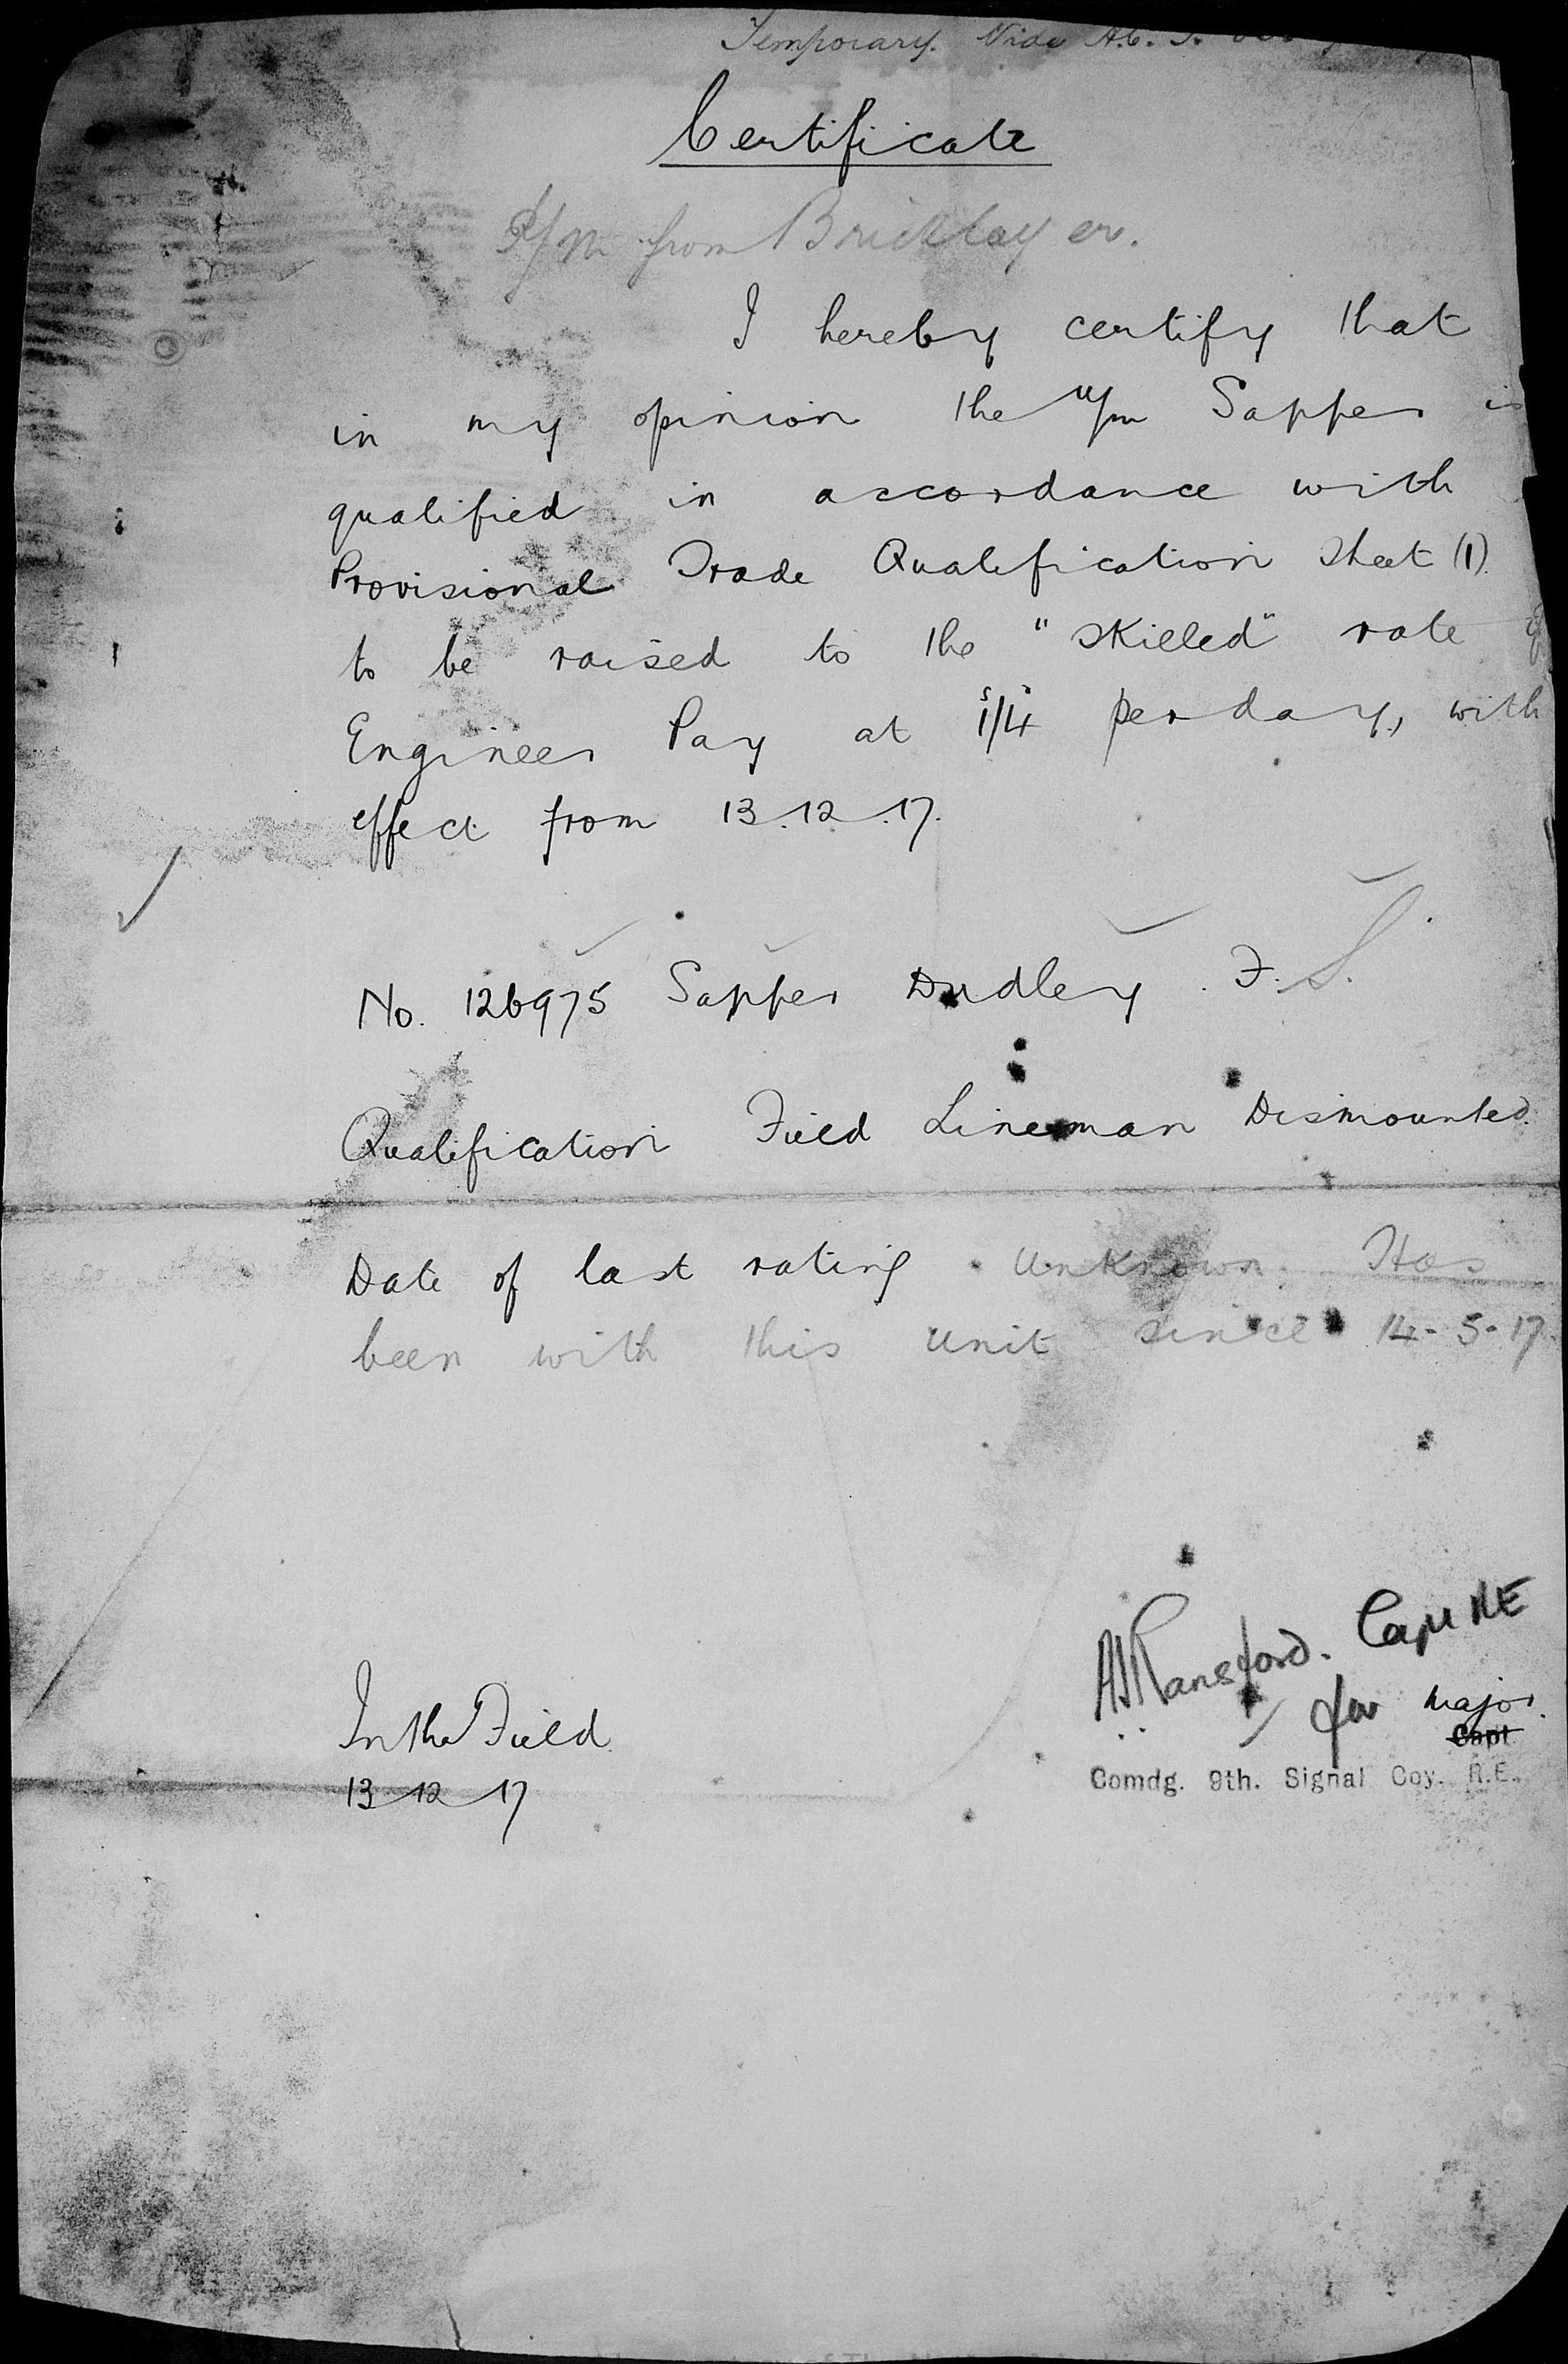 Temporary. Vide A.C.I.
Certificate
R/m from Bricklayer.
I hereby certify that
in my opinion the u/m Sapper is
qualified in accordance with
Provisional Trade Qualification Sheet (1).
to be raised to the "Skilled" rate of
Engineer Pay at 1/4 per day, with
effect from 13.12.17.
No. 126975 Sapper Dudley. F. S.
Qualification Field Lineman Dismounted.
Date of last rating. Unknown. Has
been with this unit since 14-5-17.
Ransford. Capt RE
for Major.
Capt
Comdg. 9th. Signal Coy. R.E.
In the Field.
13-12-17